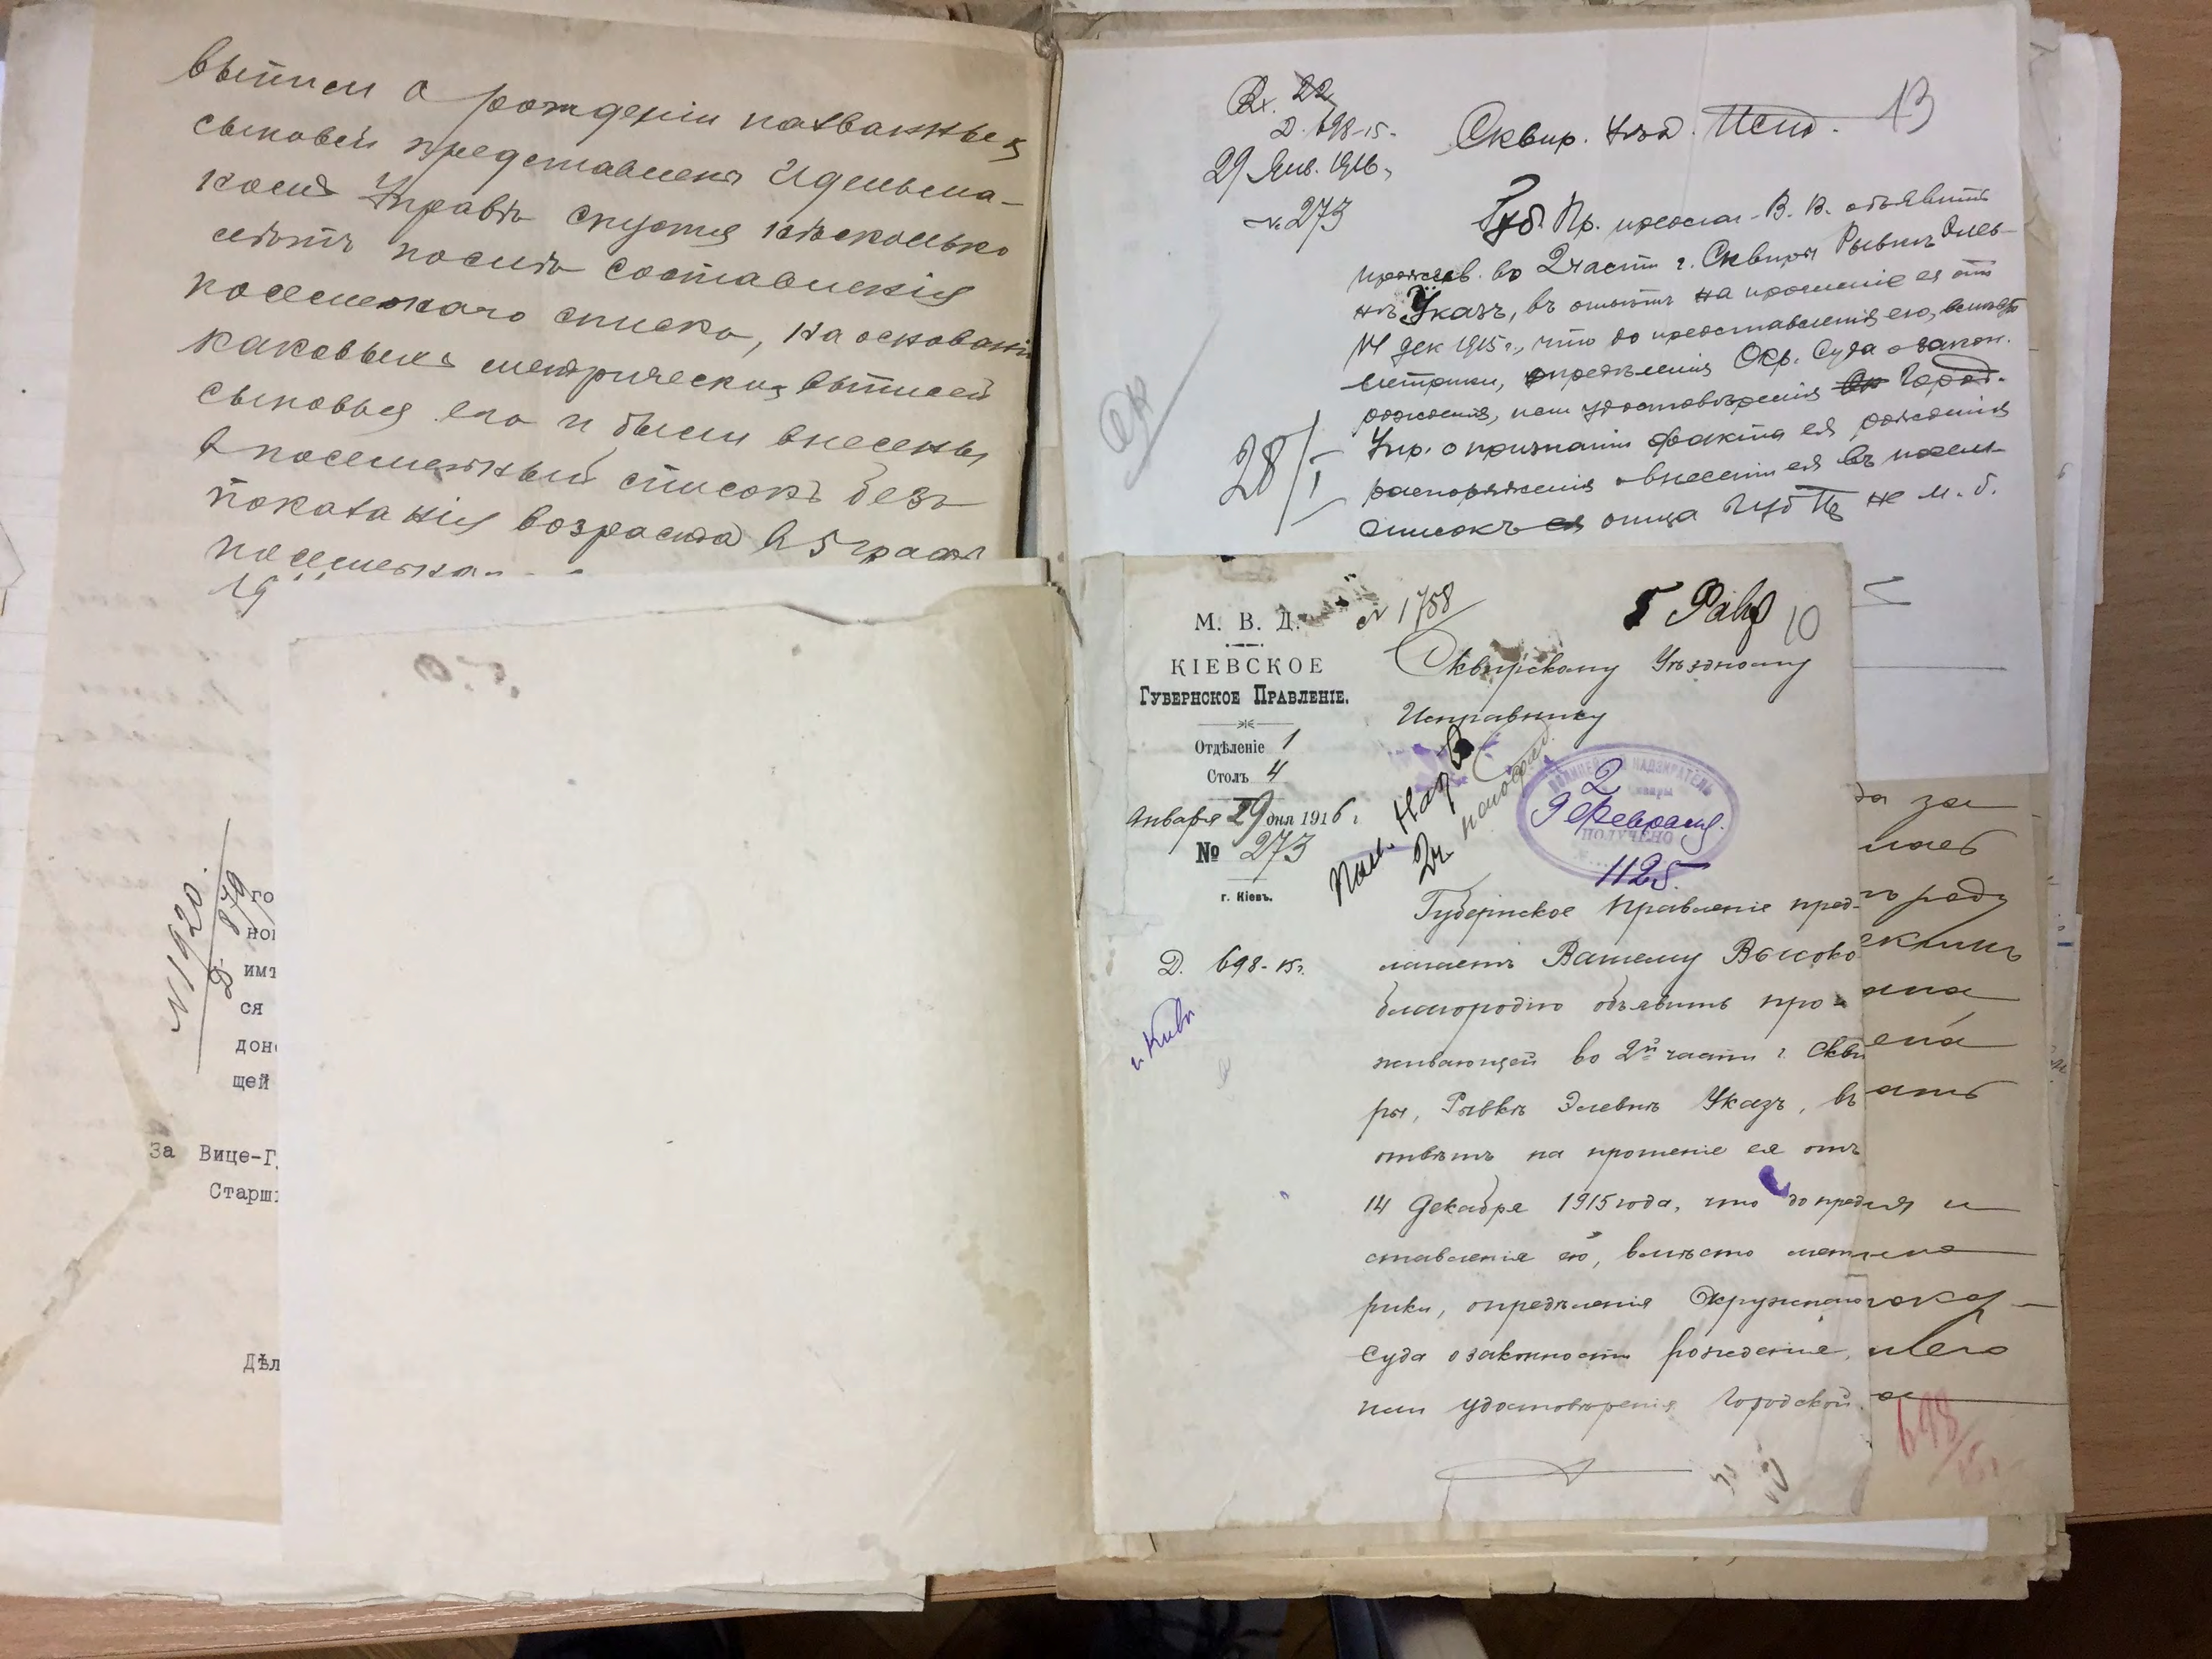 выписи о рождении названных
сыновей представлена Идельма-
номъ Управѣ спустя нѣсколько
лѣтъ послѣ составленія
посемейнаго списка, на основаніи
каковыхъ метрическихъ выписей
сыновья его и были внесены
в посемейный списокъ безъ
показанія возраста в 5 графѣ
N 1920.
Д. 879
го
ног
имѣ
ся
дон
щей
За Вице-Г
Старш
Дѣл
Вх. 22
Д. 698-15.
29 Янв. 1916.
№ 273
Сквир. Уѣзд. Испр. 13
Губ. Пр. предлаг. В. В. объявить
прожив. во 2 части г. Сквиры Рывкѣ Элев-
нѣ Указъ, въ отвѣтъ на прошеніе ея отъ
14 дек 1915 г., что до представленія ею, вмѣсто
метрики, опредѣленія Окр. Суда о закон.
рожденія, или удостовѣренія Город.
Упр. о признаніи факта ея рожденія
распоряженія о внесеніи ея въ посем.
списокъ отца Губ Пр не м. б.
28/I
М. В. Д.
КІЕВСКОЕ
ГУБЕРНСКОЕ ПРАВЛЕНІЕ.
Отдѣленіе 1
Столъ 4
Января 29 дня 1916 г.
№ 273
г. Кіевъ.
Д. 698-15 г.
№ 1758
10
Сквирскому Уѣздному
Исправнику
Пол. Надз.
2 ч.
ПОЛИЦЕЙСКІЙ НАДЗИРАТЕЛЬ
2
9 Февраля
ПОЛУЧЕНО
1125.
Губернское Правленіе пред-
лагаетъ Вашему Высоко
благородію объявить про-
живающей во 2й части г. Скви
ры, Рывкѣ Элевнѣ Указъ, въ
отвѣтъ на прошеніе ея отъ
14 Декабря 1915 года, что до пред
ставленія ею, вмѣсто мет
рики, опредѣленія Окружного
Суда о законности рожденія,
или удостовѣренія Городской
698/15 г.